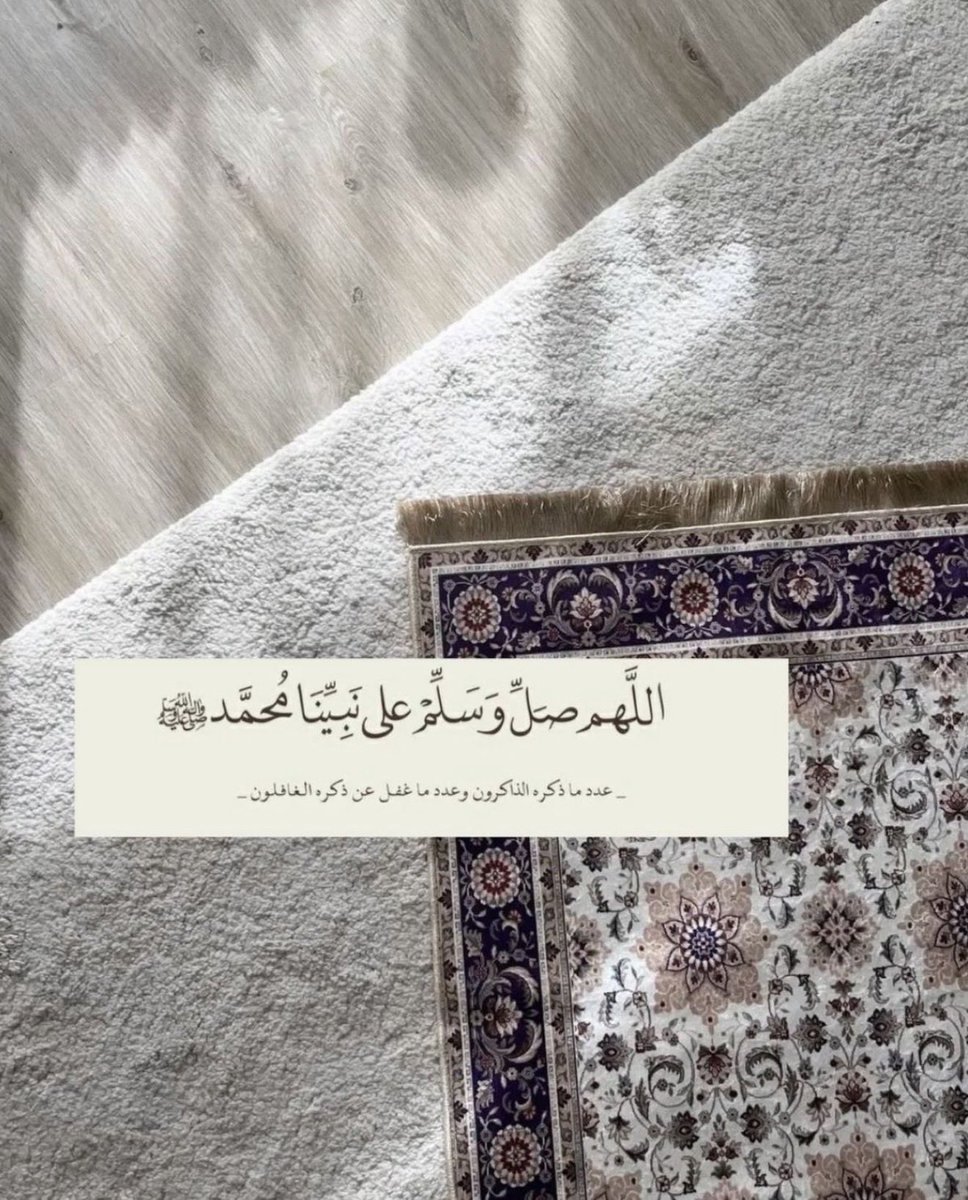 اللَّهم صَلِّ وَسَلِّمْ على نَبِيِّنَا مُحمَّد ﷺ
_ عدد ما ذكره الذاكرون وعدد ما غفل عن ذكره الغافلون _